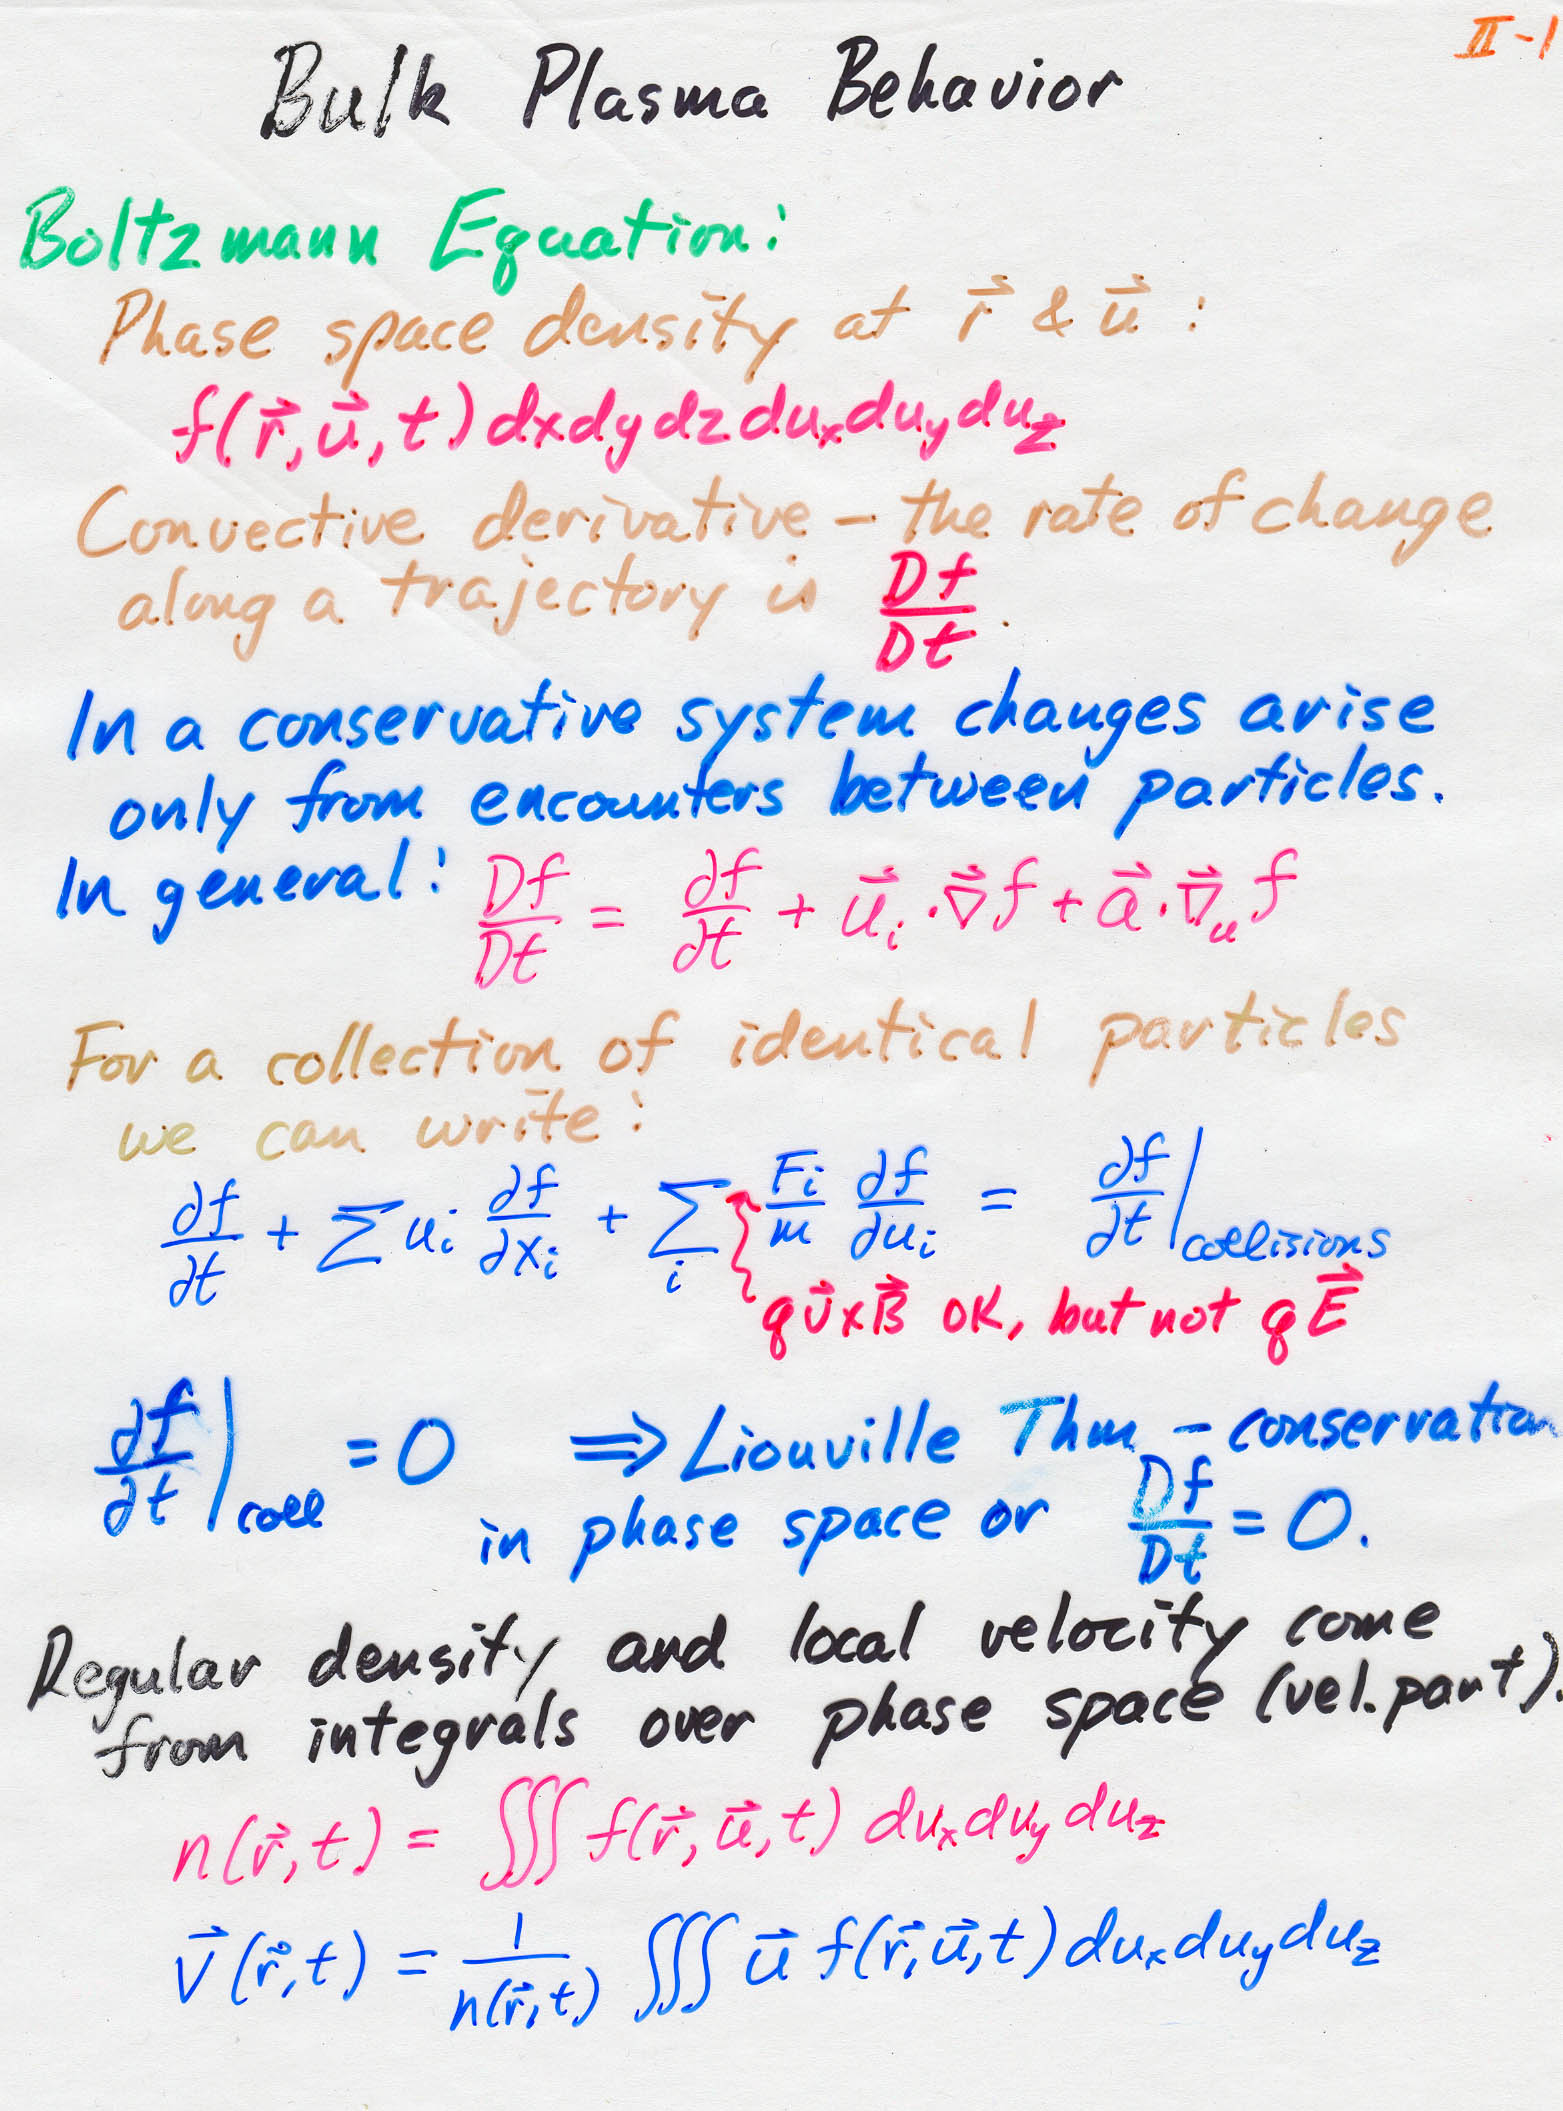 II-1
Bulk Plasma Behavior
Boltzmann Equation:
Phase space density at r⃗ & u⃗ :
f(r⃗,u⃗,t)dxdydzdu_xdu_ydu_z
Convective derivative – the rate of change
along a trajectory is Df/Dt.
In a conservative system changes arise
only from encounters between particles.
In general: Df/Dt = ∂f/∂t + u⃗_i·∇⃗f + a⃗·∇⃗_u f
For a collection of identical particles
we can write:
∂f/∂t + Σ u_i ∂f/∂x_i + Σ_i F_i/m ∂f/∂u_i = ∂f/∂t|collisions
qv⃗×B⃗ OK, but not qE⃗
∂f/∂t|coll = 0 ⇒ Liouville Thm – conservation
in phase space or Df/Dt = 0.
Regular density and local velocity come
from integrals over phase space (vel. part).
n(r⃗,t) = ∭ f(r⃗,u⃗,t) du_xdu_ydu_z
v⃗(r⃗,t) = 1/n(r⃗,t) ∭ u⃗ f(r⃗,u⃗,t)du_xdu_ydu_z